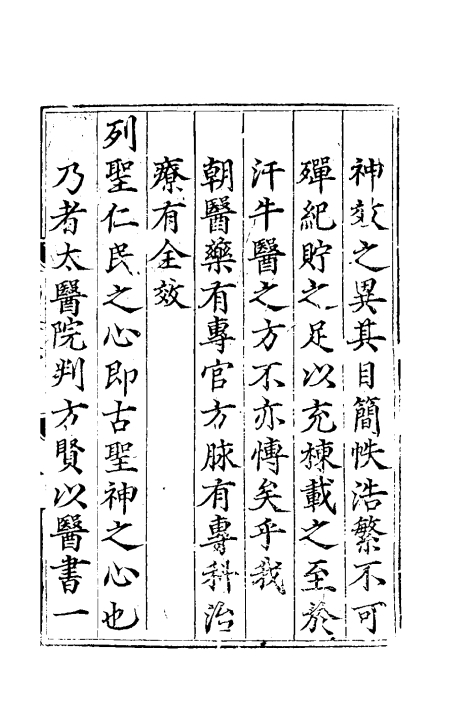 神效之異其目簡帙浩繁不可
殫紀貯之足以充棟載之至於
汗牛醫之方不亦慱矣乎我
朝醫藥有專官方脉有專科治
療有全效
列聖仁民之心即古聖神之心也
乃者太醫院判方賢以醫書一